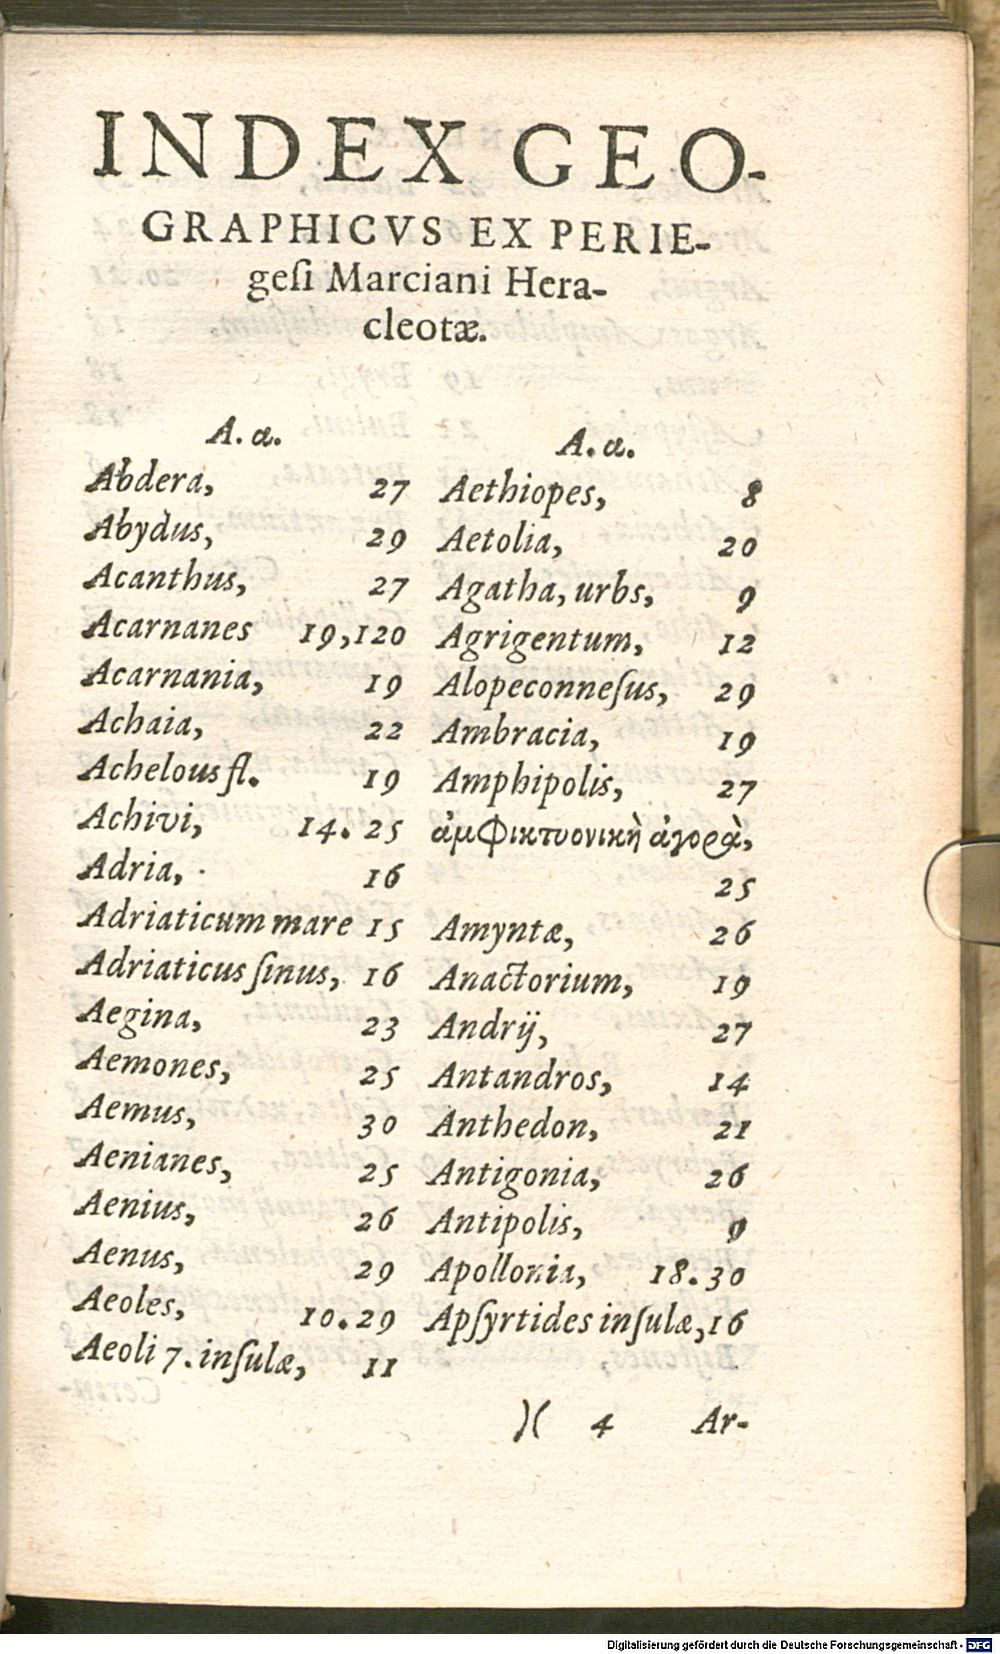 INDEX GEO-
GRAPHICVS EX PERIE-
geſi Marciani Hera-
cleotæ.
A. α.
Abdera, 27
Abydus, 29
Acanthus, 27
Acarnanes 19,120
Acarnania, 19
Achaia, 22
Achelous fl. 19
Achivi, 14. 25
Adria, 16
Adriaticum mare 15
Adriaticus ſinus, 16
Aegina, 23
Aemones, 25
Aemus, 30
Aenianes, 25
Aenius, 26
Aenus, 29
Aeoles, 10. 29
Aeoli 7. inſulæ, 11
A. α.
Aethiopes, 8
Aetolia, 20
Agatha, urbs, 9
Agrigentum, 12
Alopeconneſus, 29
Ambracia, 19
Amphipolis, 27
ἀμφικτυονικὴ ἀγορὰ,
25
Amyntæ, 26
Anactorium, 19
Andrij, 27
Antandros, 14
Anthedon, 21
Antigonia, 26
Antipolis, 9
Apollonia, 18. 30
Apſyrtides inſulæ, 16
)( 4 Ar-
Digitalisierung gefördert durch die Deutsche Forschungsgemeinschaft - DFG